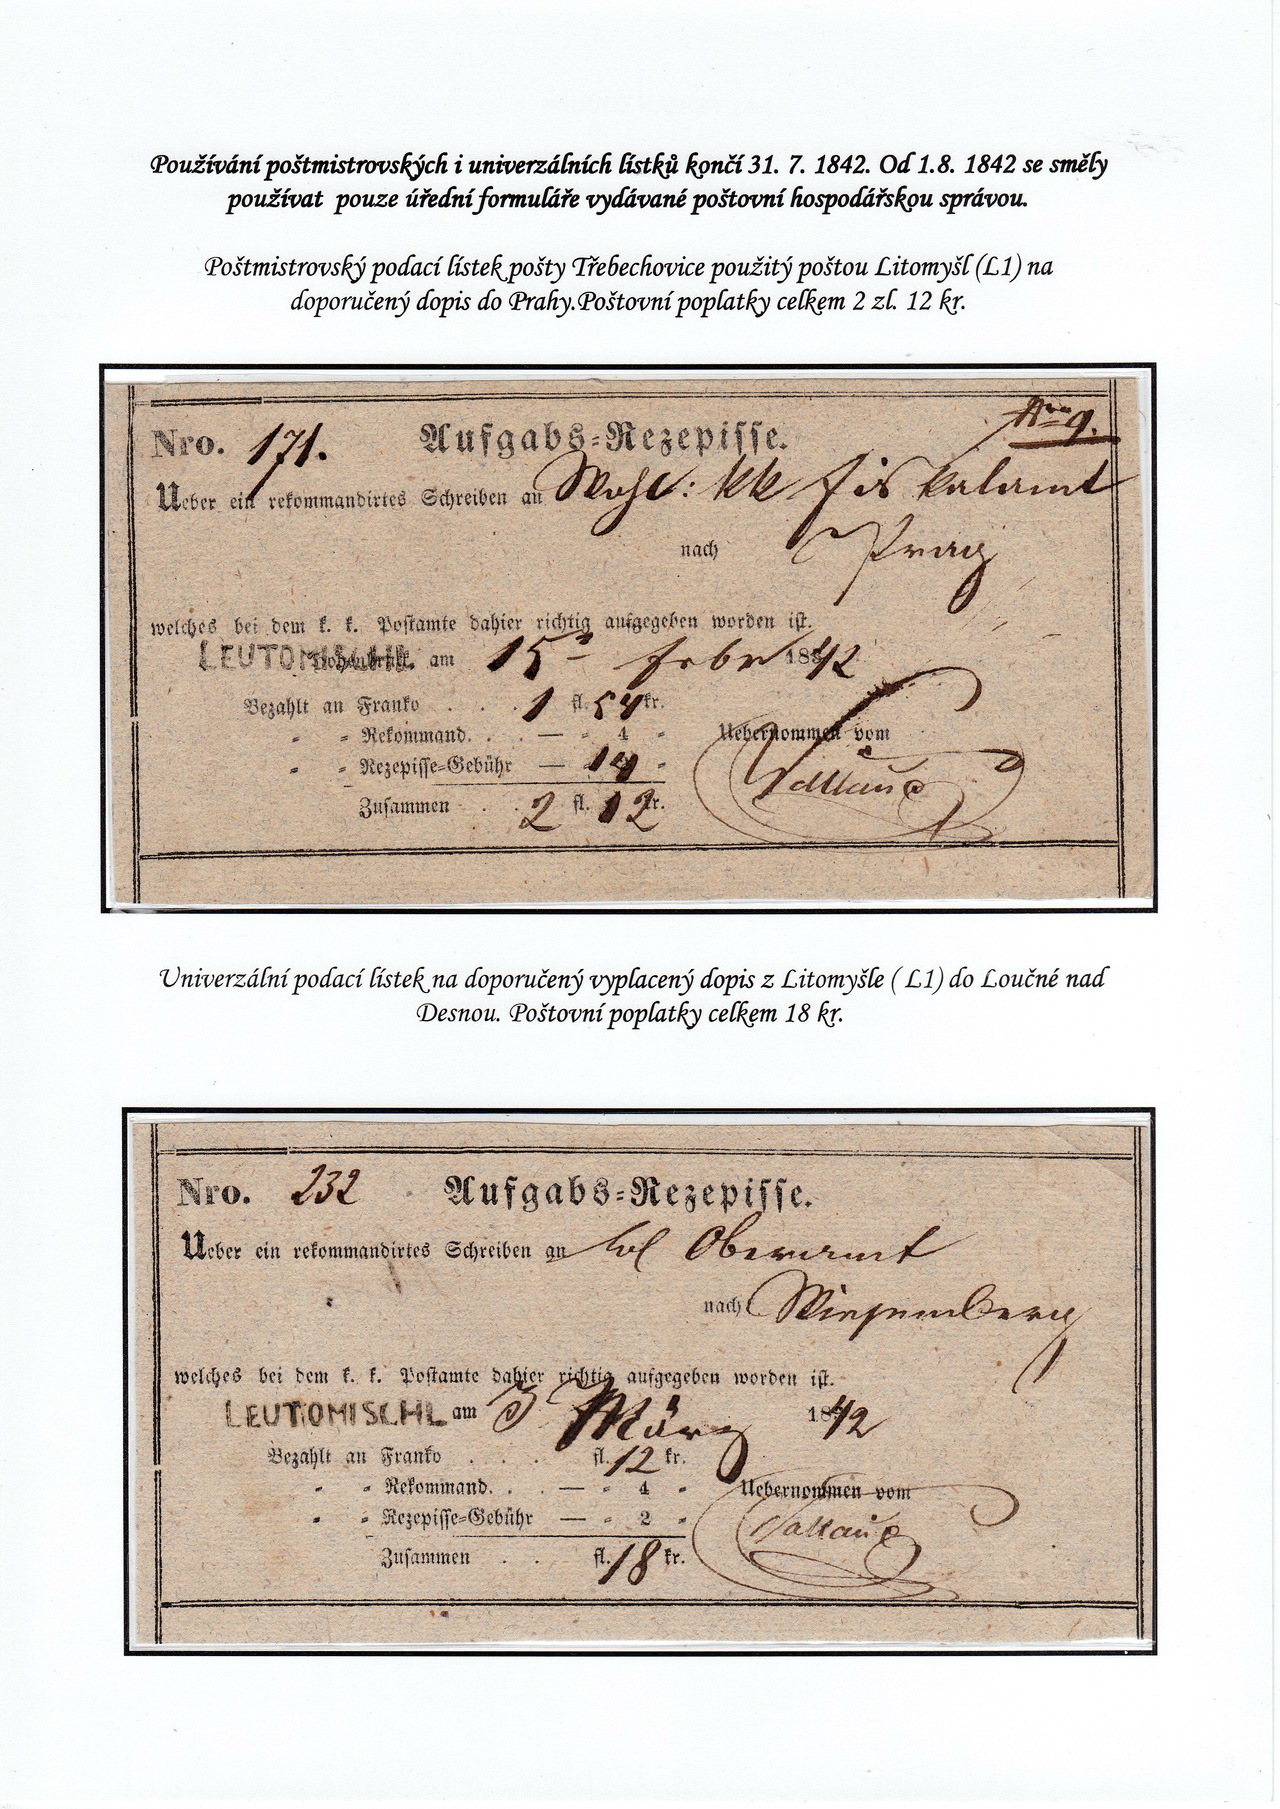 Používání poštmistrovských i univerzálních lístků končí 31. 7. 1842. Od 1.8. 1842 se směly
používat pouze úřední formuláře vydávané poštovní hospodářskou správou.
Poštmistrovský podací lístek pošty Třebechovice použitý poštou Litomyšl (L1) na
doporučený dopis do Prahy.Poštovní poplatky celkem 2 zl. 12 kr.
Nro. 171. Aufgabs=Rezepisse. 9.
Ueber ein rekommandirtes Schreiben an kk Fiskalamt
nach Prag
welches bei dem k. k. Postamte dahier richtig aufgegeben worden ist.
LEUTOMISCHL am 15 Febr 1842
Bezahlt an Franko . . . 1 fl. 54 kr.
" " Rekommand. . . — " 4 "
Uebernommen vom
" " Rezepisse=Gebühr — 14 "
Zusammen . . 2 fl. 12 kr.
Univerzální podací lístek na doporučený vyplacený dopis z Litomyšle ( L1) do Loučné nad
Desnou. Poštovní poplatky celkem 18 kr.
Nro. 232 Aufgabs=Rezepisse.
Ueber ein rekommandirtes Schreiben an löl Oberamt
nach Wiesenberg
welches bei dem k. k. Postamte dahier richtig aufgegeben worden ist.
LEUTOMISCHL am 3 März 1842
Bezahlt an Franko . . . fl. 12 kr.
" " Rekommand. . . — " 4 "
Uebernommen vom
" " Rezepisse=Gebühr — " 2 "
Zusammen . . fl. 18 kr.